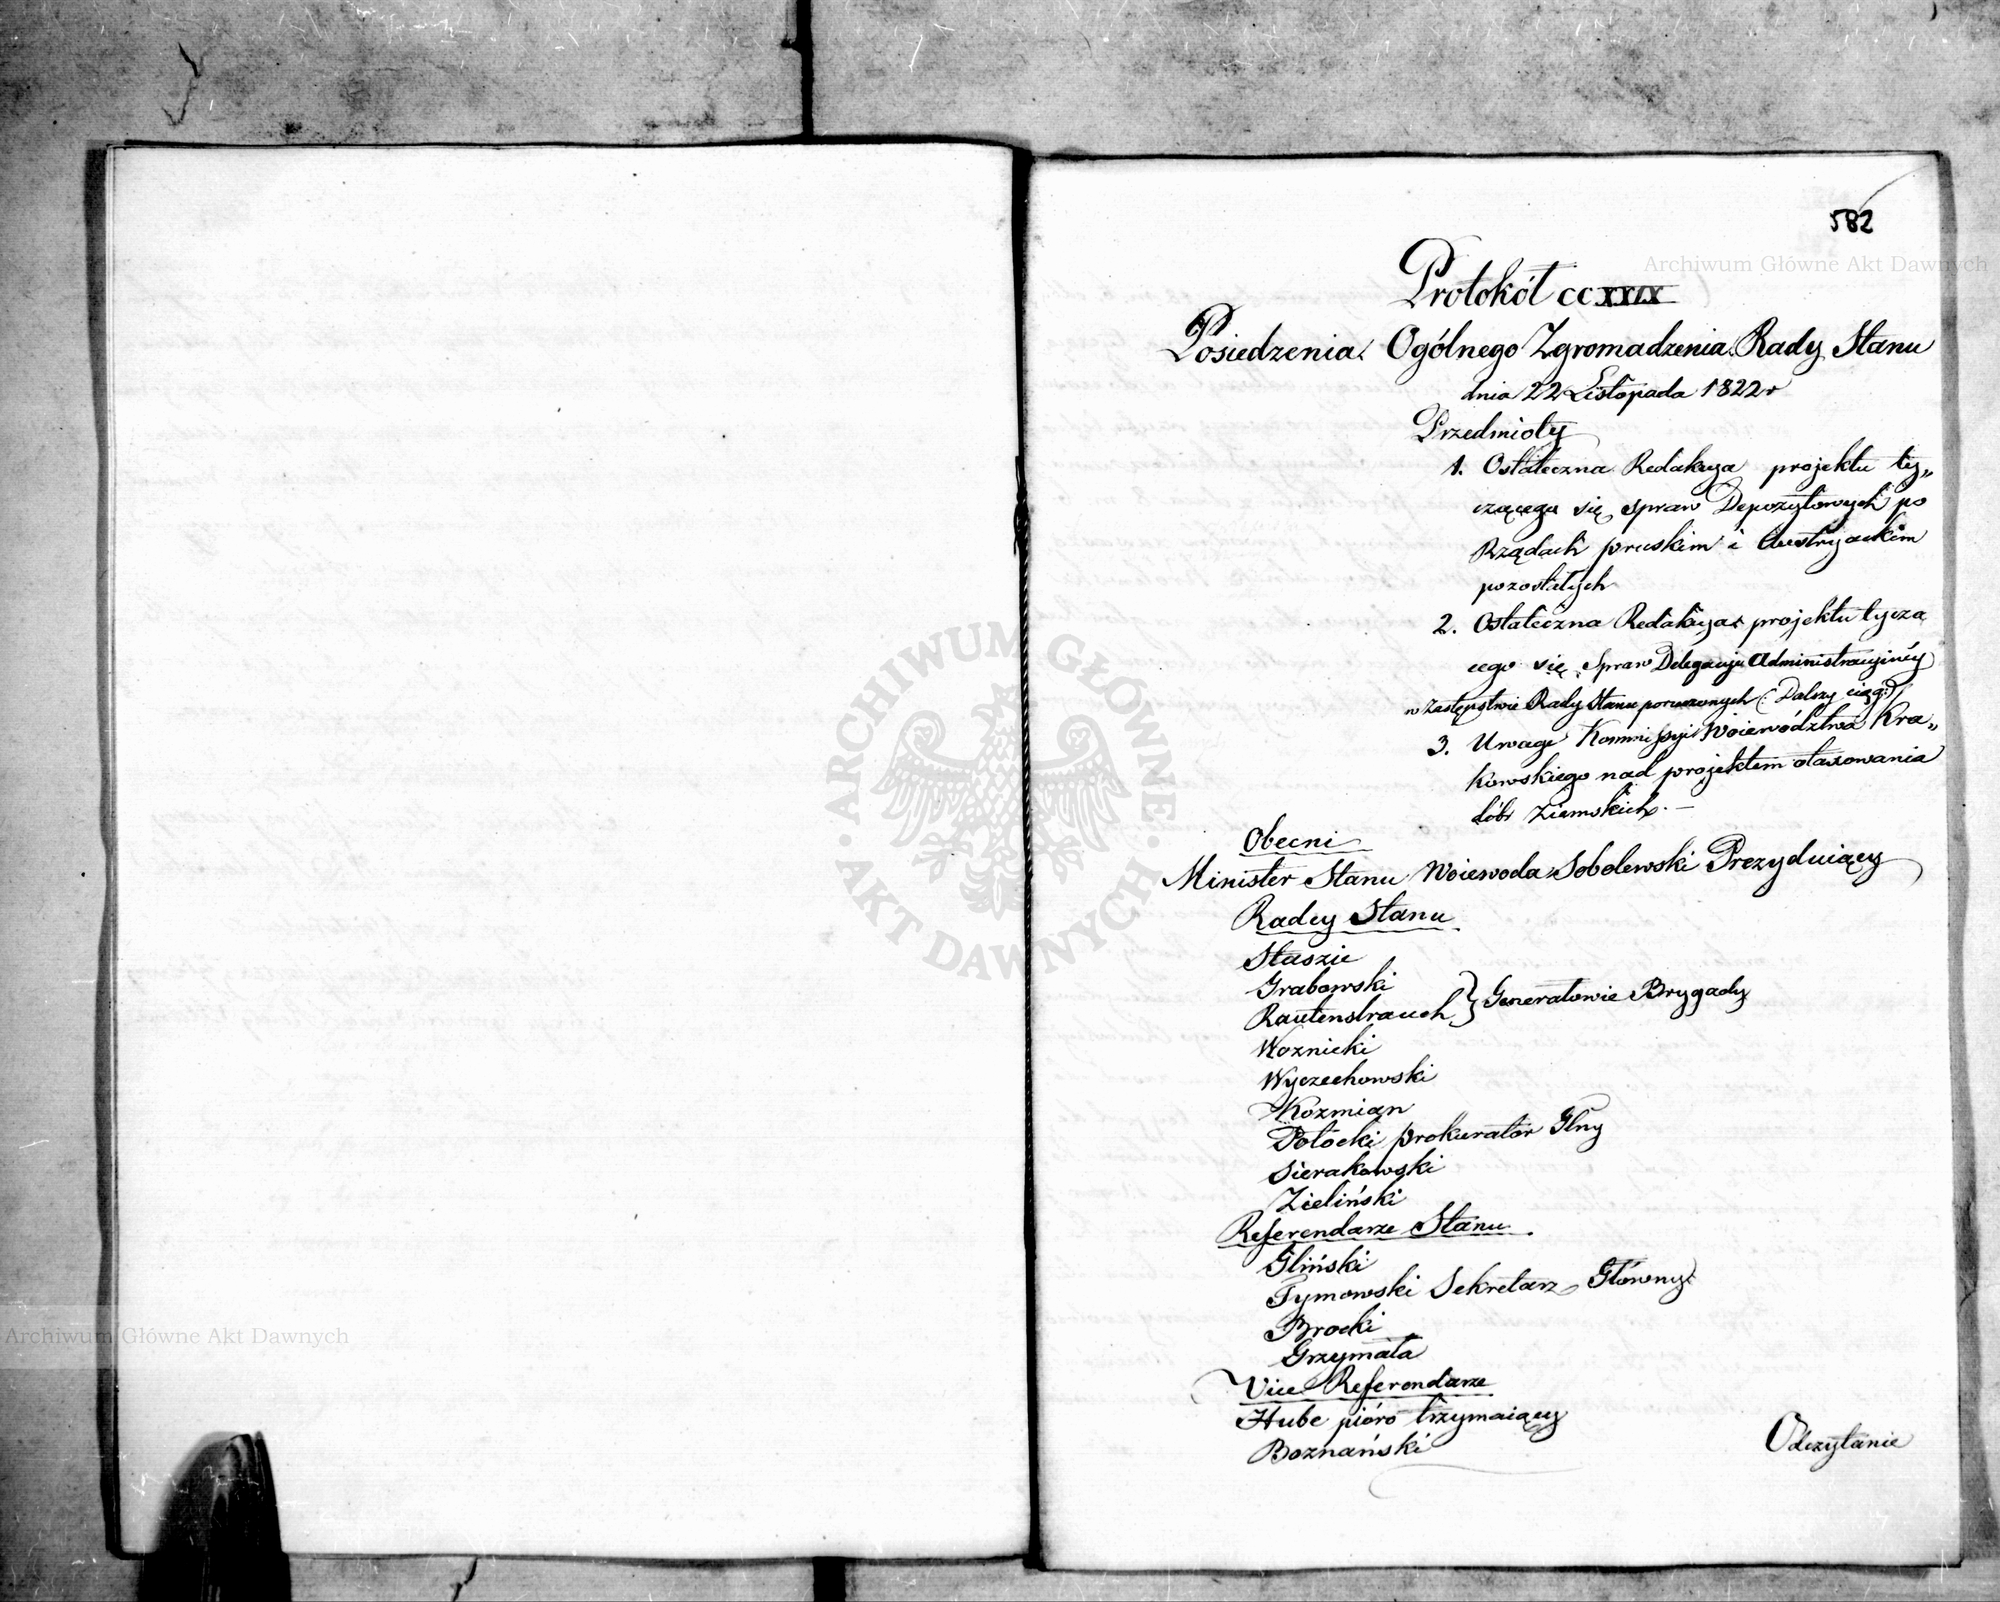 582
Protokół CCXXIX
Posiedzenia Ogólnego Zgromadzenia Rady Stanu
dnia 22 Listopada 1822 r
Przedmioty
1. Ostateczna Redakcya projektu ty„
czącego się spraw Depozytowych po
Rządach pruskim i Austryackim
pozostałych
2. Ostateczna Redakcya projektu tyczą
cego się Spraw Delegacyi Administracyinéy
w Zastępstwie Rady Stanu poruczonych (: Dalszy ciąg:)
3. Uwagi Kommissyi Woiewództwa Kra„
kowskiego nad projektem otaxowania
dóbr Ziemskich. —
Obecni
Minister Stanu Woiewoda Sobolewski Prezyduiący
Radcy Stanu
Staszic
Grabowski
Rautenstrauch } Generałowie Brygady
Woznicki
Wyczechowski
Kozmian
Potocki prokurator Glny
Sierakowski
Zieliński
Referendarze Stanu
Gliński
Tymowski Sekretarz Główny
Brocki
Grzymała
Vice Referendarze
Hube pióro trzymaiący
Boznański
Odczytanie
Archiwum Główne Akt Dawnych
ARCHIWUM GŁÓWNE · AKT DAWNYCH ·
Archiwum Główne Akt Dawnych